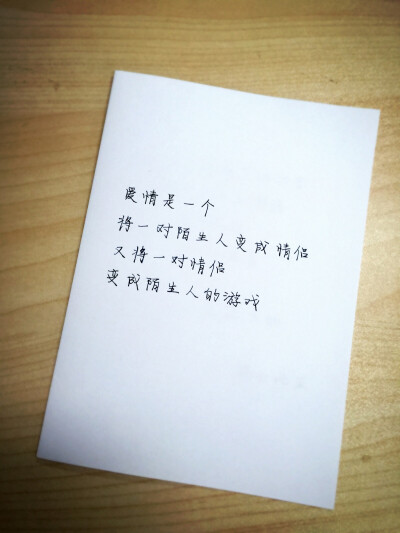 爱情是一个
将一对陌生人变成情侣
又将一对情侣
变成陌生人的游戏